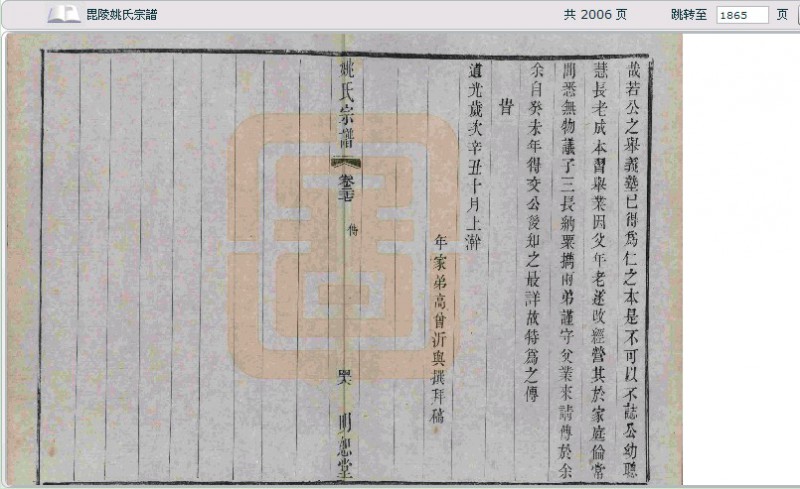 毘陵姚氏宗譜
共 2006 页
跳转至 1865 页
哉若公之舉義塾已得為仁之本是不可以不誌公幼聰
慧長老成本習舉業因父年老遂改經營其於家庭倫常
間悉無物議子三長納粟攜兩弟謹守父業來請傳於余
余自癸未年得交公後知之最詳故特為之傳
旹
道光歲次辛丑十月上澣
年家弟高曾沂與撰拜稿
姚氏宗譜
傳
明恕堂